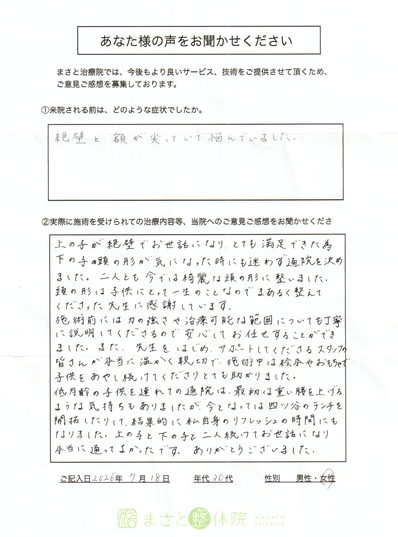 あなた様の声をお聞かせください
まさと治療院では、今後もより良いサービス、技術をご提供させて頂くため、
ご意見ご感想を募集しております。
①来院される前は、どのような症状でしたか。
絶壁と額が尖っていて悩んでいました。
②実際に施術を受けられての治療内容等、当院へのご意見ご感想をお聞かせくださ
上の子が絶壁でお世話になり、とても満足できた為
下の子の頭の形が気になった時にも迷わず通院を決め
ました。二人とも今では綺麗な頭の形に整いました。
頭の形は子供にとって一生のことなのでまあるく整えて
くださった先生に感謝しています。
施術前には力の強さや治療可能な範囲についても丁寧
に説明してくださるので安心してお任せすることができ
ました。また、先生をはじめ、サポートしてくださるスタッフの
皆さんが本当に温かく親切で、施術中は絵本やおもちゃで
子供をあやし続けてくださりとても助かりました。
低月齢の子供を連れての通院は、最初は重い腰を上げる
ような気持ちもありましたが、今となっては四ツ谷のランチを
開拓したりして、結果的に私自身のリフレッシュの時間にも
なりました。上の子と下の子と二人続けてお世話になり
本当に通ってよかったです。ありがとうございました。
ご記入日2026年7月18日 年代30代 性別 男性・女性
まさと整体院